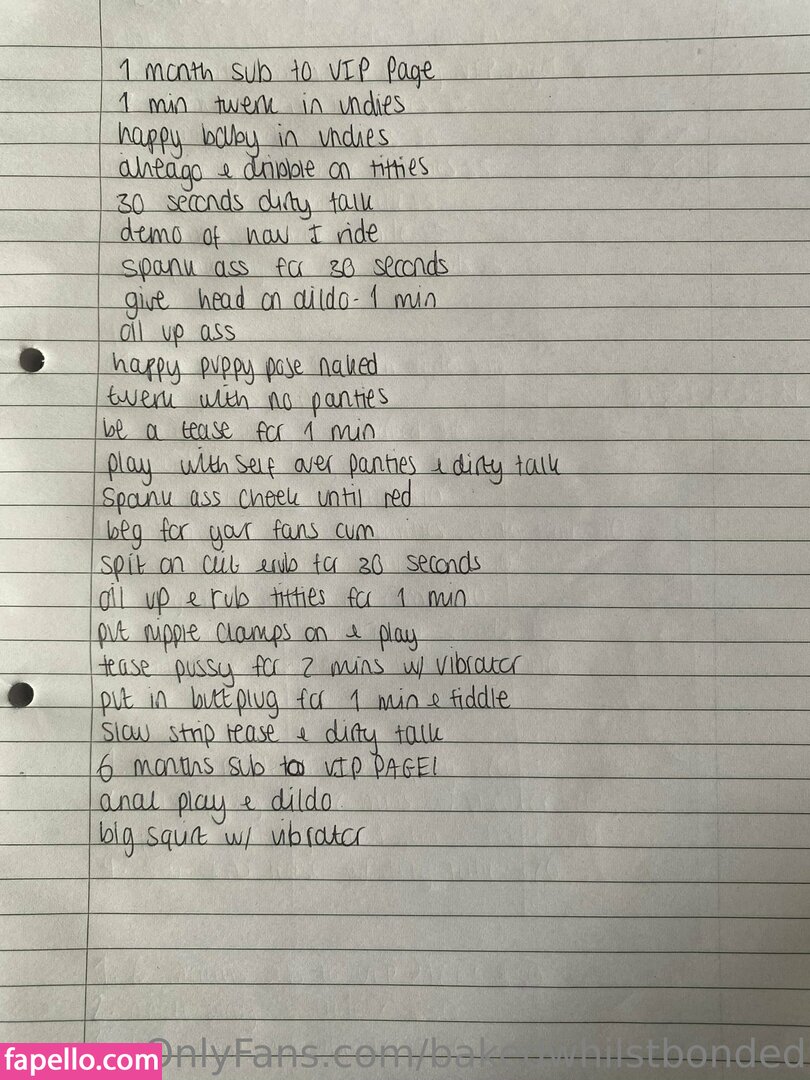 1 month sub to VIP Page
1 min twerk in undies
happy baby in undies
aheago & dribble on titties
30 seconds dirty talk
demo of how I ride
spank ass for 30 seconds
give head on dildo - 1 min
oil up ass
happy puppy pose naked
twerk with no panties
be a tease for 1 min
play with self over panties & dirty talk
spank ass cheek until red
beg for your fans cum
spit on clit & rub for 30 seconds
oil up & rub titties for 1 min
put nipple clamps on & play
tease pussy for 2 mins w/ vibrator
put in buttplug for 1 min & fiddle
slow strip tease & dirty talk
6 months sub to VIP PAGE!
anal play & dildo
big squirt w/ vibrator
OnlyFans.com/bakedwhilstbonded
fapello.com